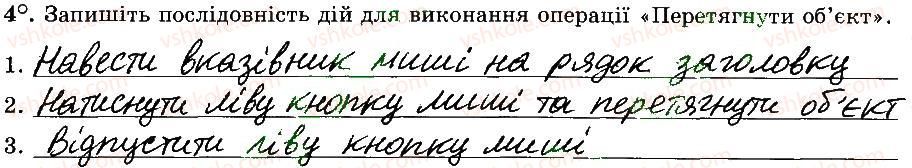 4°. Запишіть послідовність дій для виконання операції «Перетягнути об’єкт».
1. Навести вказівник миші на рядок заголовку
2. Натиснути ліву кнопку миші та перетягнути об'єкт
3. Відпустити ліву кнопку миші